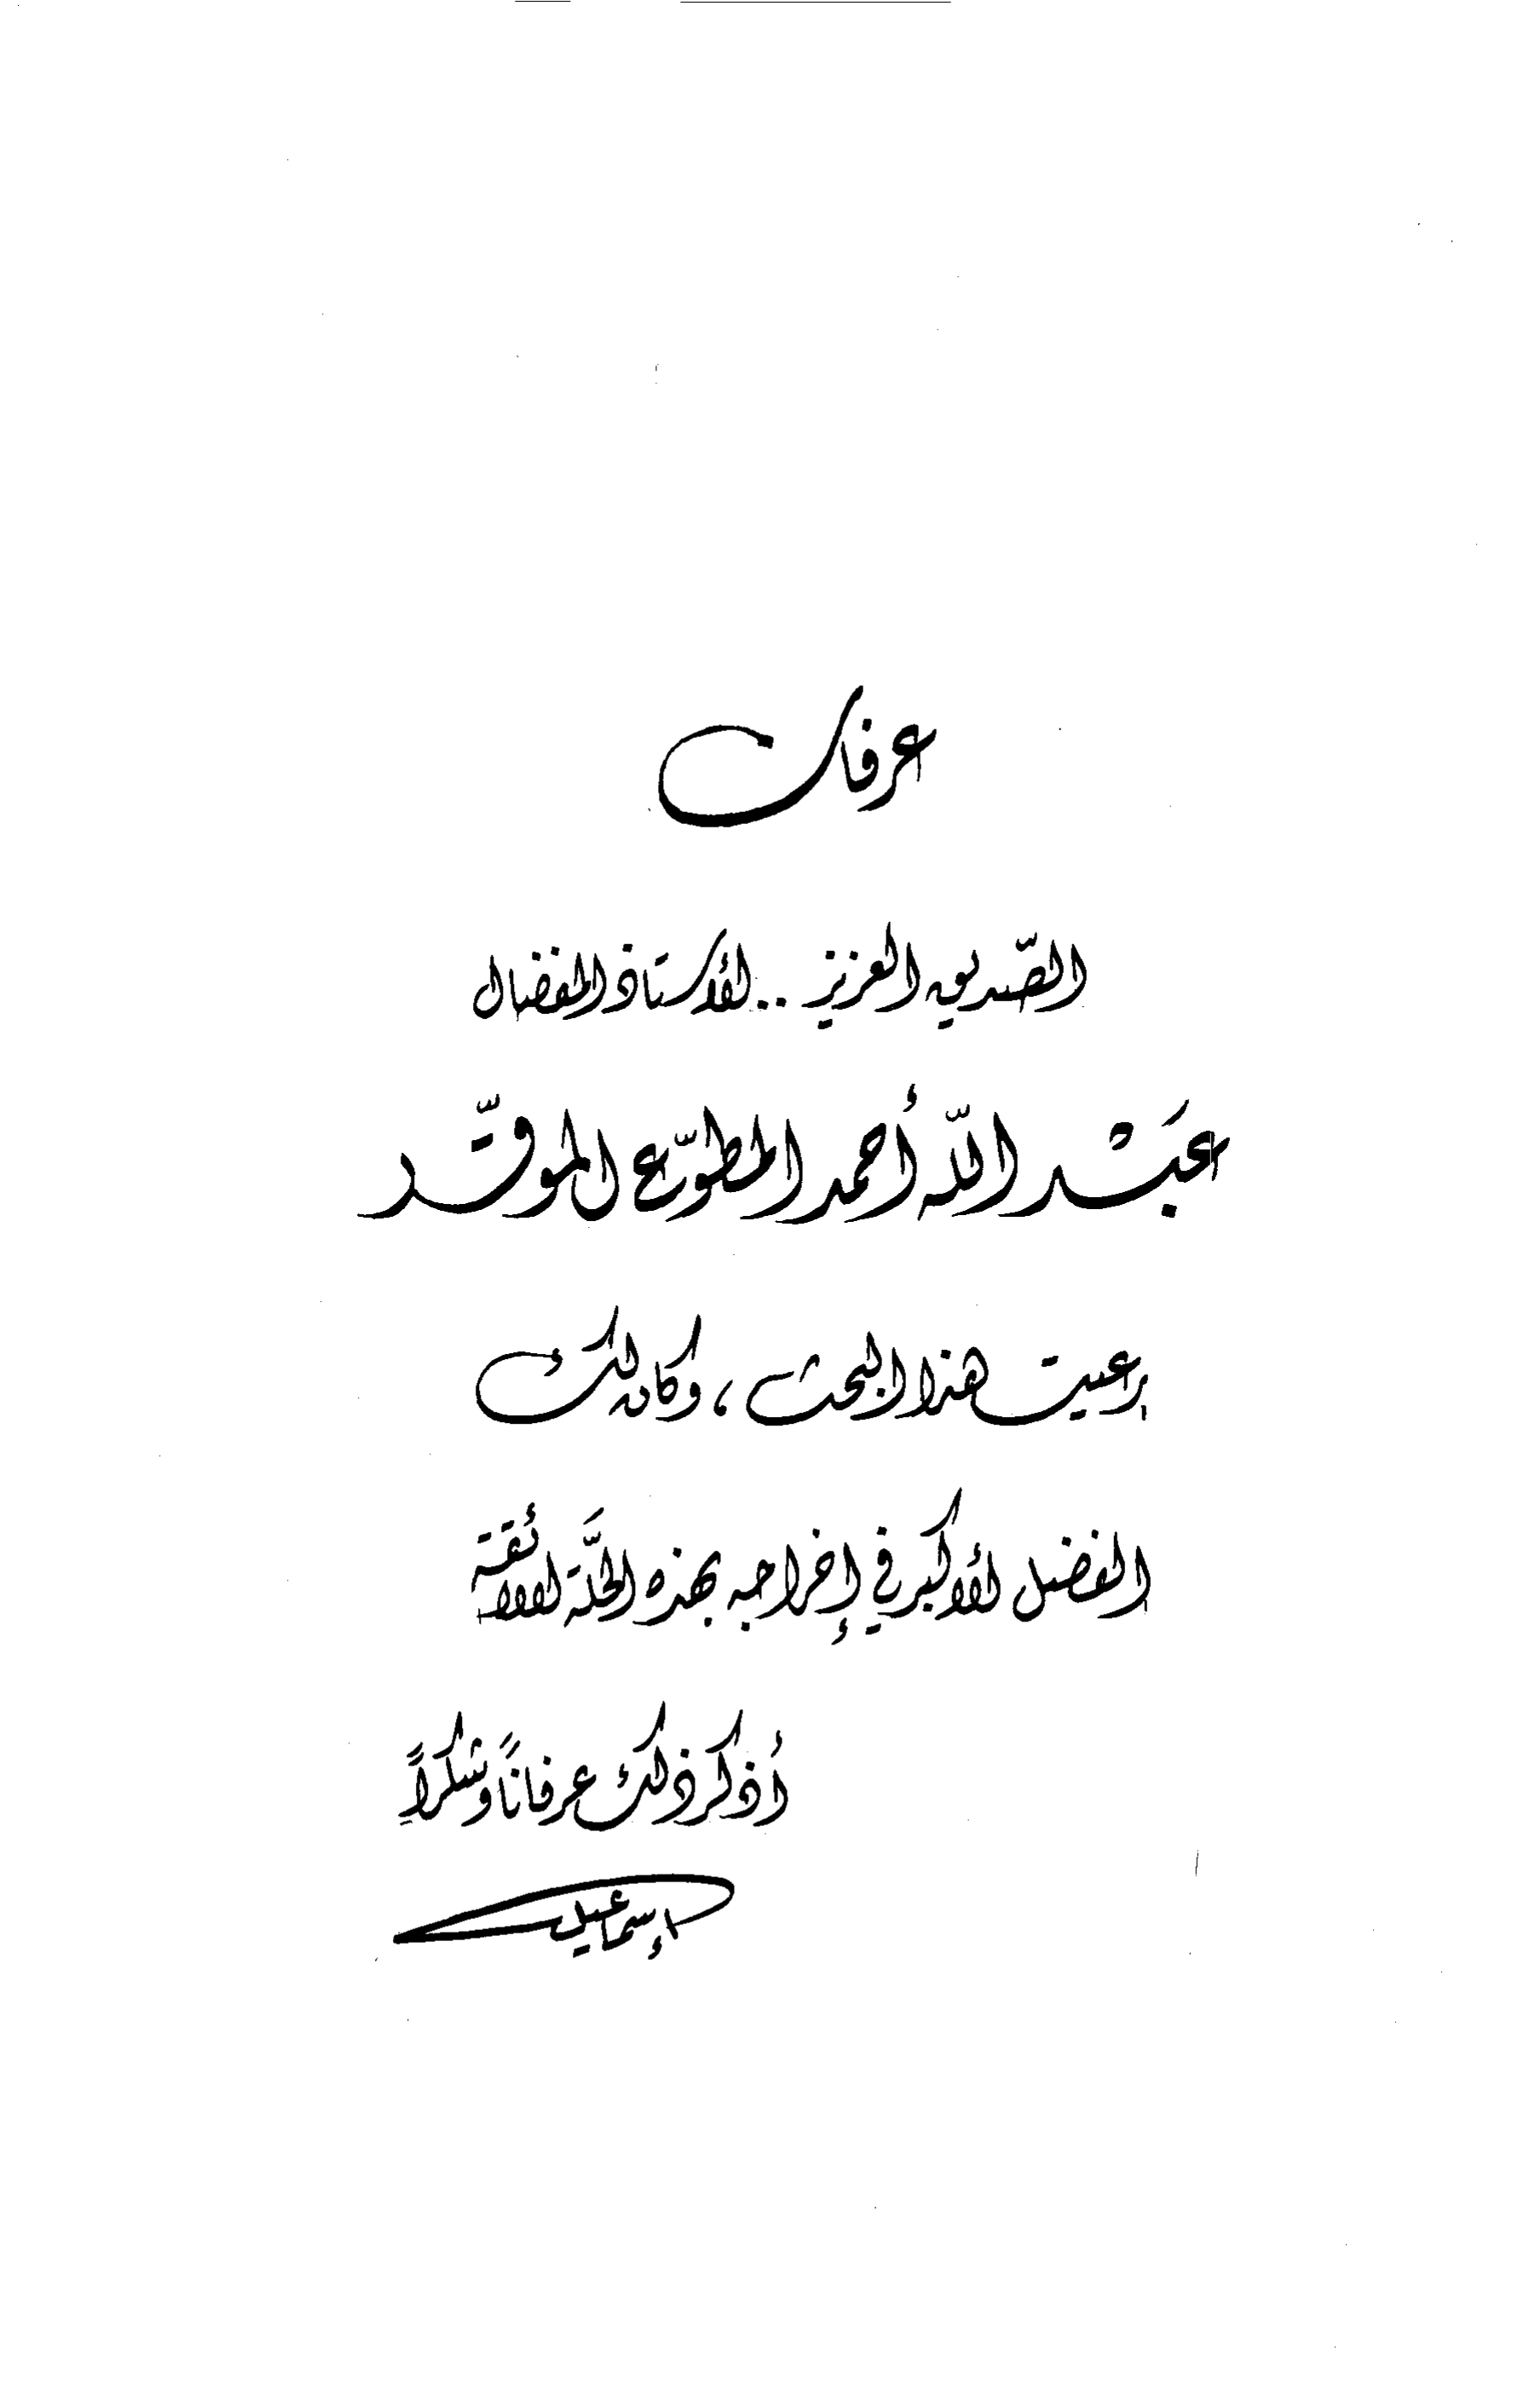 عرفان
الصّديق العزيز .. الأستاذ المفضال
عَبْد اللّه أحمد المطوّع الموقّر
رعيت هذا البحث ، وكان لك
الفضل الأكبر في إخراجه بهذه الحلَّة اللائقة
أذكر ذلك عرفاناً وشكراً
إسماعيل